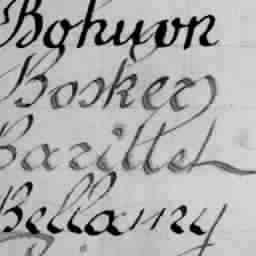 Bohuon
Bosker
Barillet
Bellamy